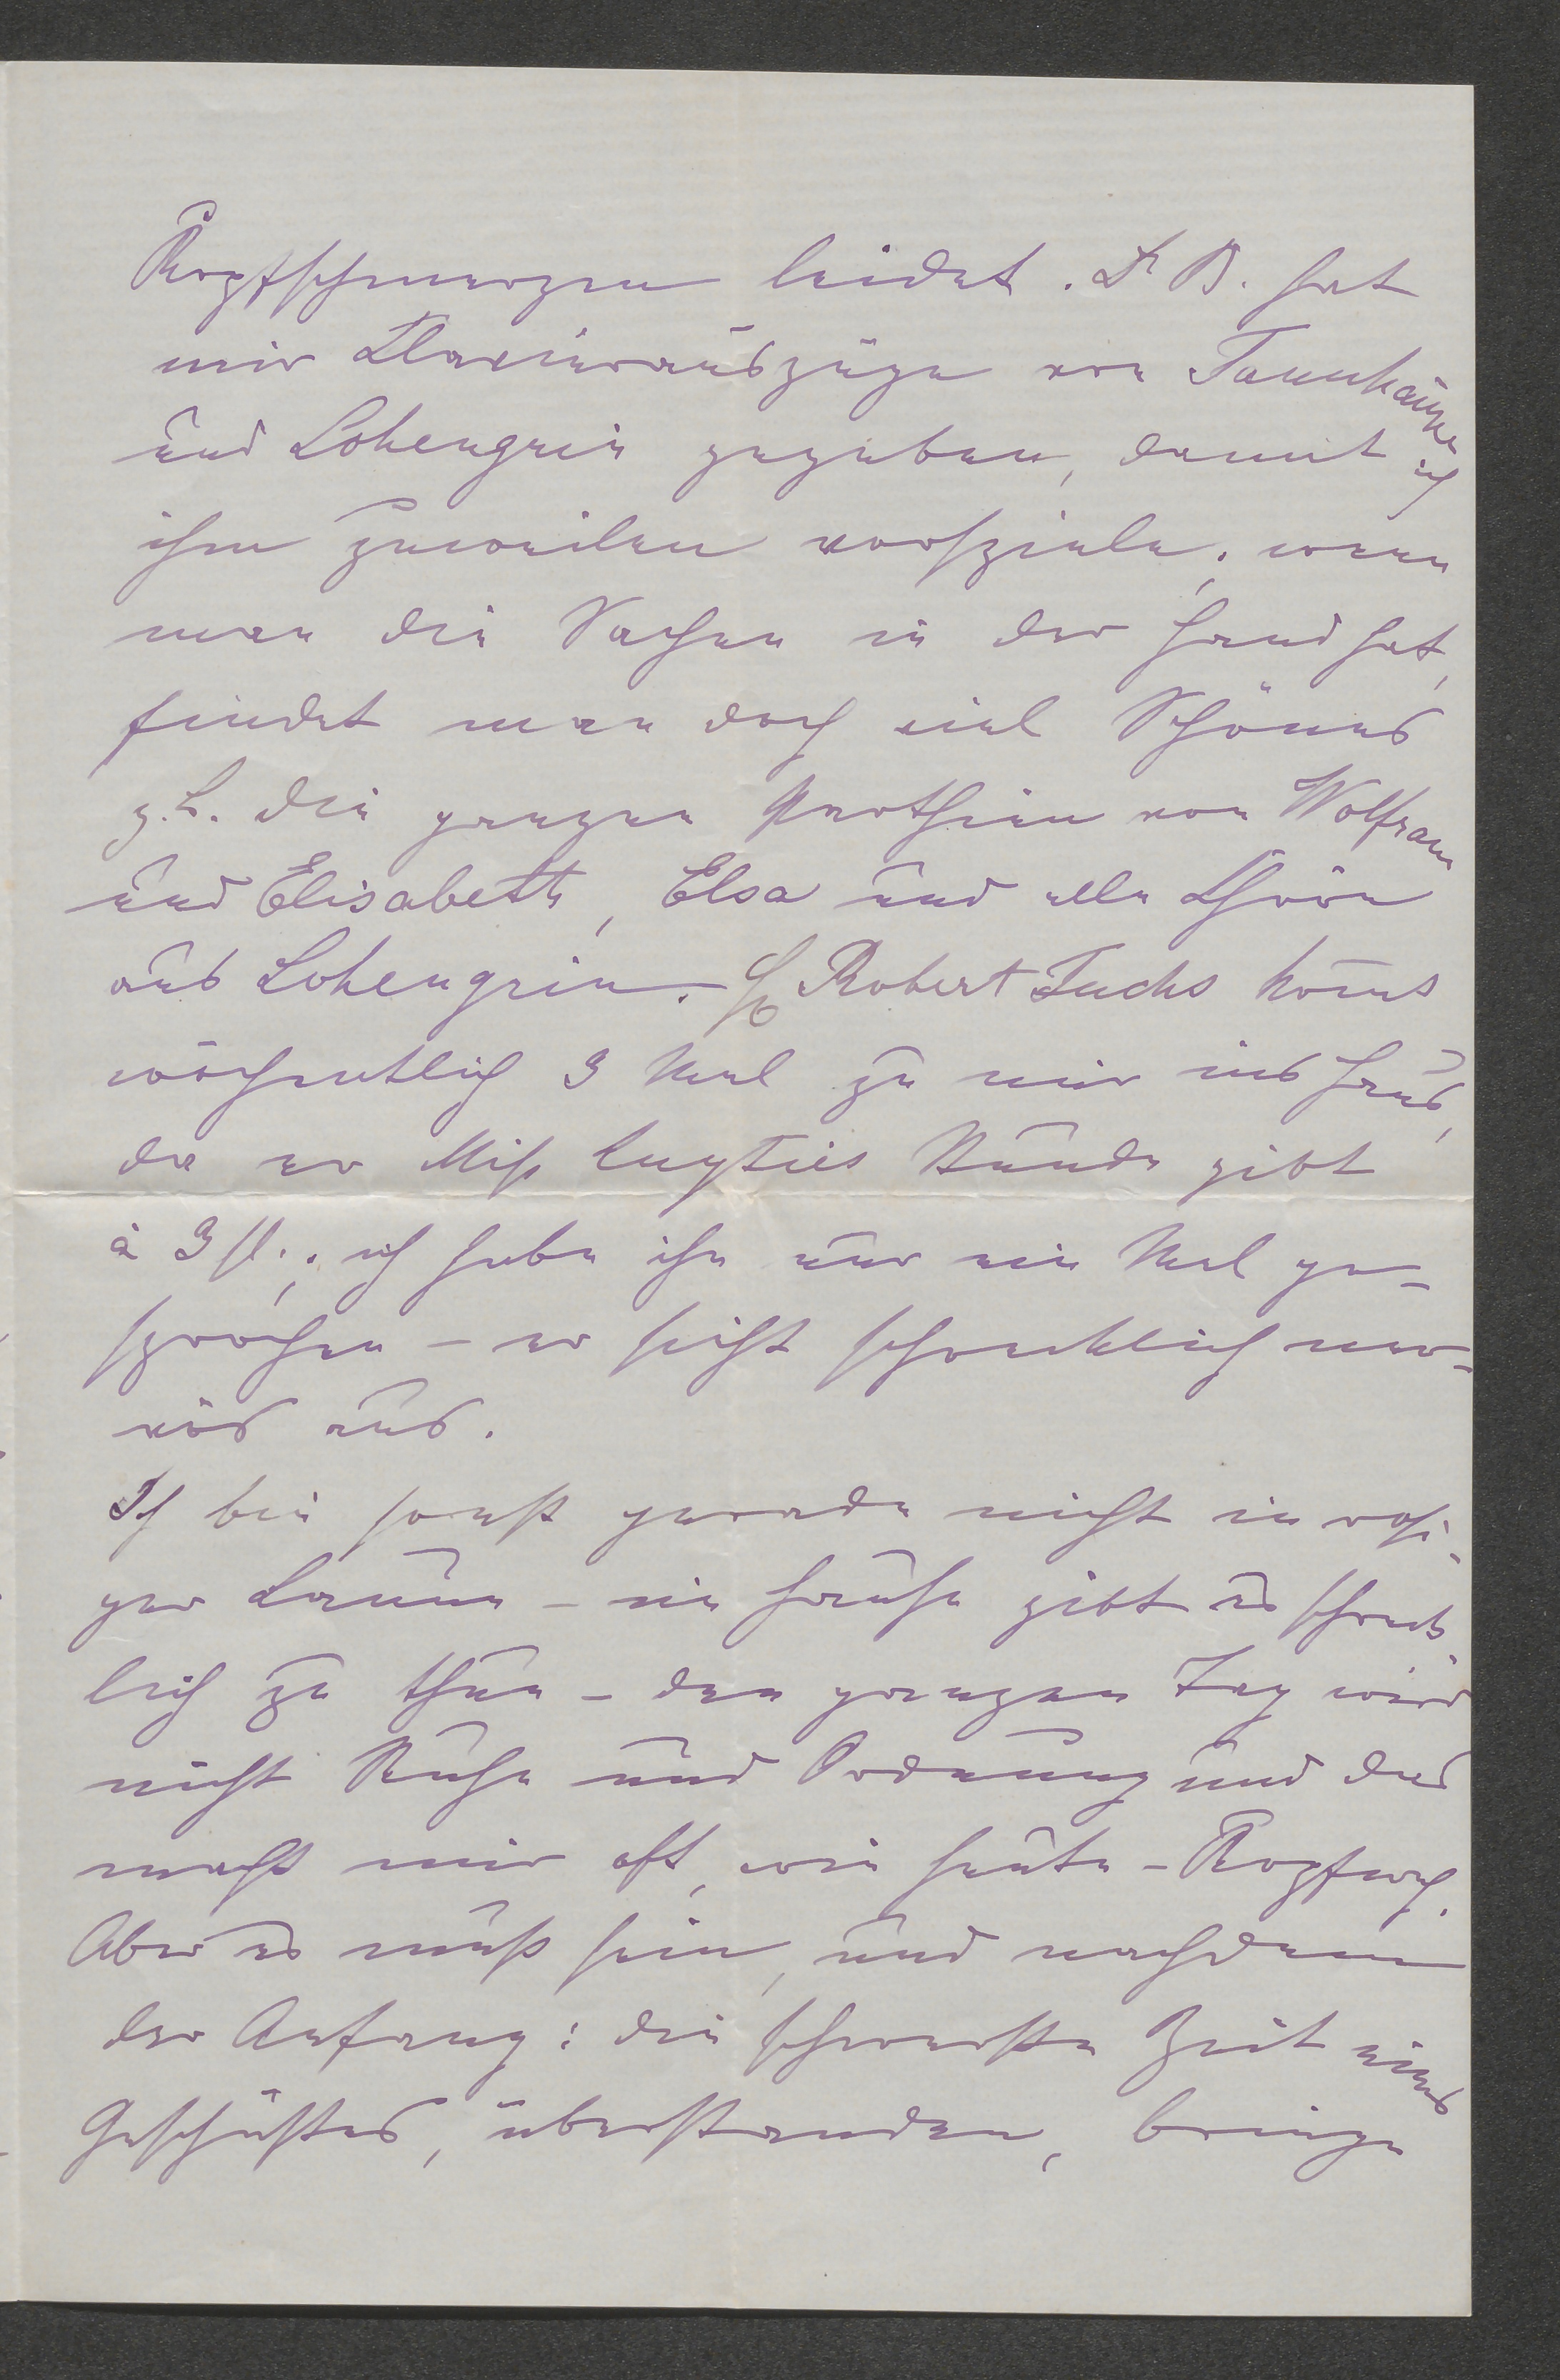 Kopfschmerzen leidet. Dr B. hat
mir Klavierauszüge von Tannhäuser
und Lohengrin gegeben, damit ich
ihm zuweilen vorspiele; wenn
man die Sachen in der Hand hat,
findet man doch viel Schönes
z.B. die ganzen Parthien von Wolfram
und Elisabeth, Elsa und alle Chöre
aus Lohengrin. H Robert Fuchs kom̄t
wöchentlich 3 Mal zu mir ins Haus,
da er Miß Stunde gibt
à 3 fl.; ich habe ihn nur ein Mal ge-
sprochen – er sieht schrecklich ner-
vös aus.
Ich bin sonst gerade nicht in rosi-
ger Laune – im Hause gibt es schreck-
lich zu thun – den ganzen Tag wird
nicht Ruhe und Ordnung und das
macht mir oft, wie heute – Kopfweh.
Aber es muß sein, und nachdem
der Anfang: die schwerste Zeit eines
Geschäftes, überstanden, bringe